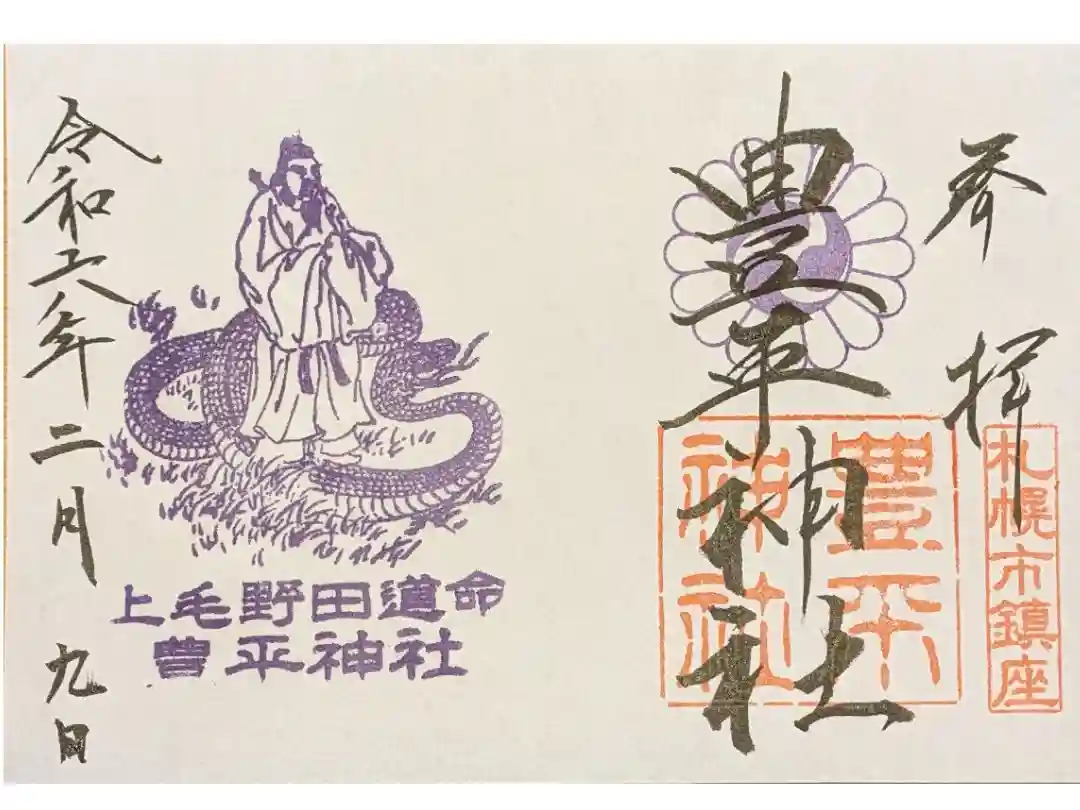 参拝
札幌市鎮座
豊平神社
豊平
神社
上毛野田道命
豊平神社
令和六年二月九日